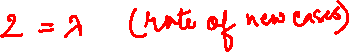 2 = λ (rate of new cases)